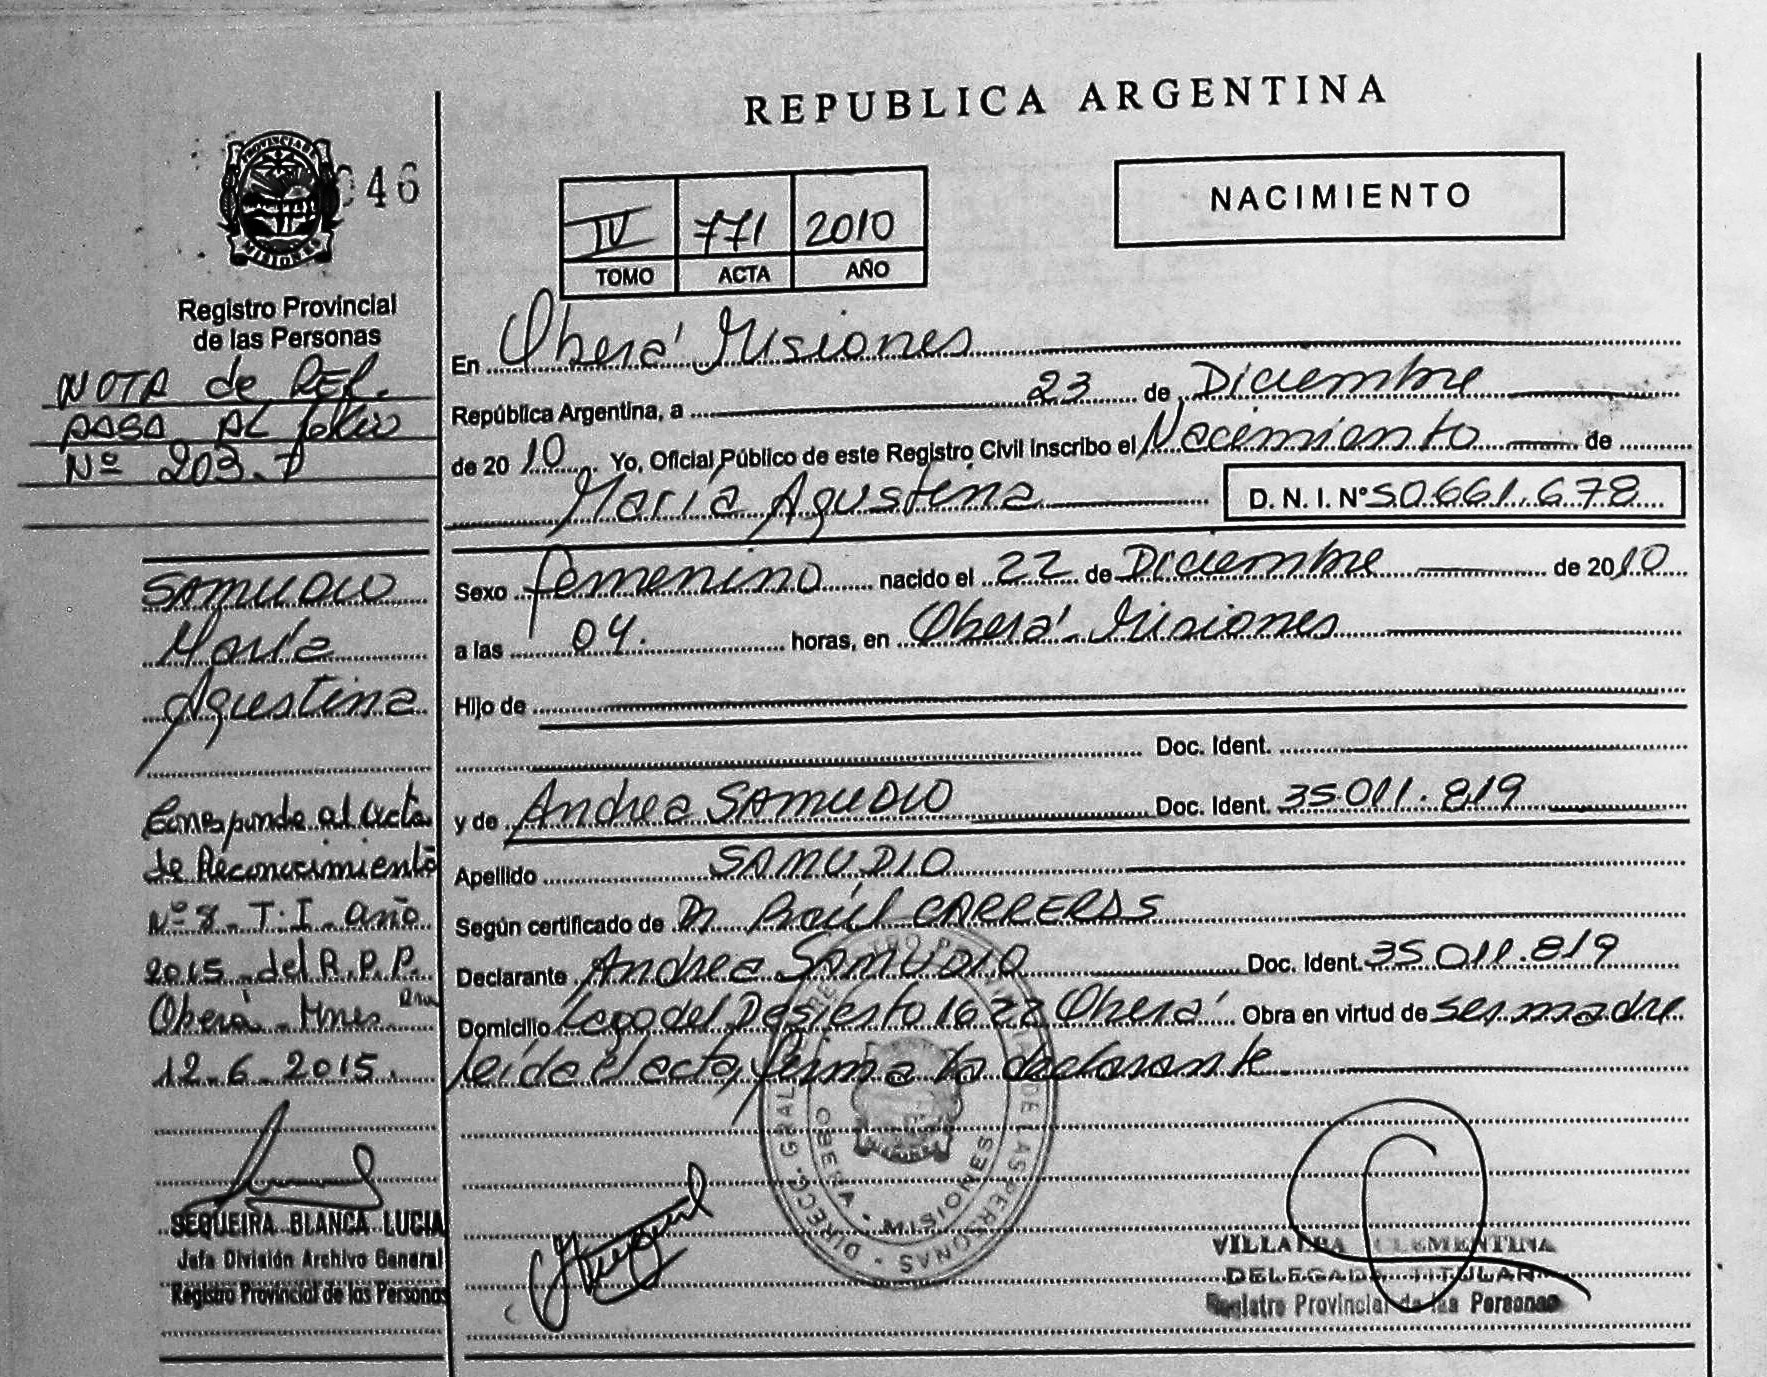 REPUBLICA ARGENTINA
PROVINCIA DE
MISIONES
046
Registro Provincial
de las Personas
NOTA de REF.
PASA AL folio
Nº 203.
IV 771 2010
TOMO ACTA AÑO
NACIMIENTO
En Oberá Misiones
República Argentina, a 23 de Diciembre
de 2010. Yo, Oficial Público de este Registro Civil Inscribo el Nacimiento de
María Agustina D. N. I. Nº 50.661.678
Sexo femenino nacido el 22 de Diciembre de 2010
a las 04. horas, en Oberá Misiones
Hijo de
Doc. Ident.
y de Andrea SAMUDIO Doc. Ident. 35.011.819
Apellido SAMUDIO
Según certificado de Dr Raúl CARRERAS
Declarante Andrea SAMUDIO Doc. Ident. 35.011.819
Domicilio del Desierto 1622 Oberá Obra en virtud de ser madre
leída el acta, firma la declarante.
SAMUDIO
María
Agustina
Corresponde al acta
de Reconocimiento
Nº 8. T. I. año
2015 del R.P.P.
Oberá Mnes
12.6.2015.
SEQUEIRA BLANCA LUCIA
Jefa División Archivo General
Registro Provincial de las Personas
DIRECC. GRAL. DE LAS PERSONAS
OBERA - MISIONES
VILLALBA CLEMENTINA
DELEGADA TITULAR
Registro Provincial de las Personas